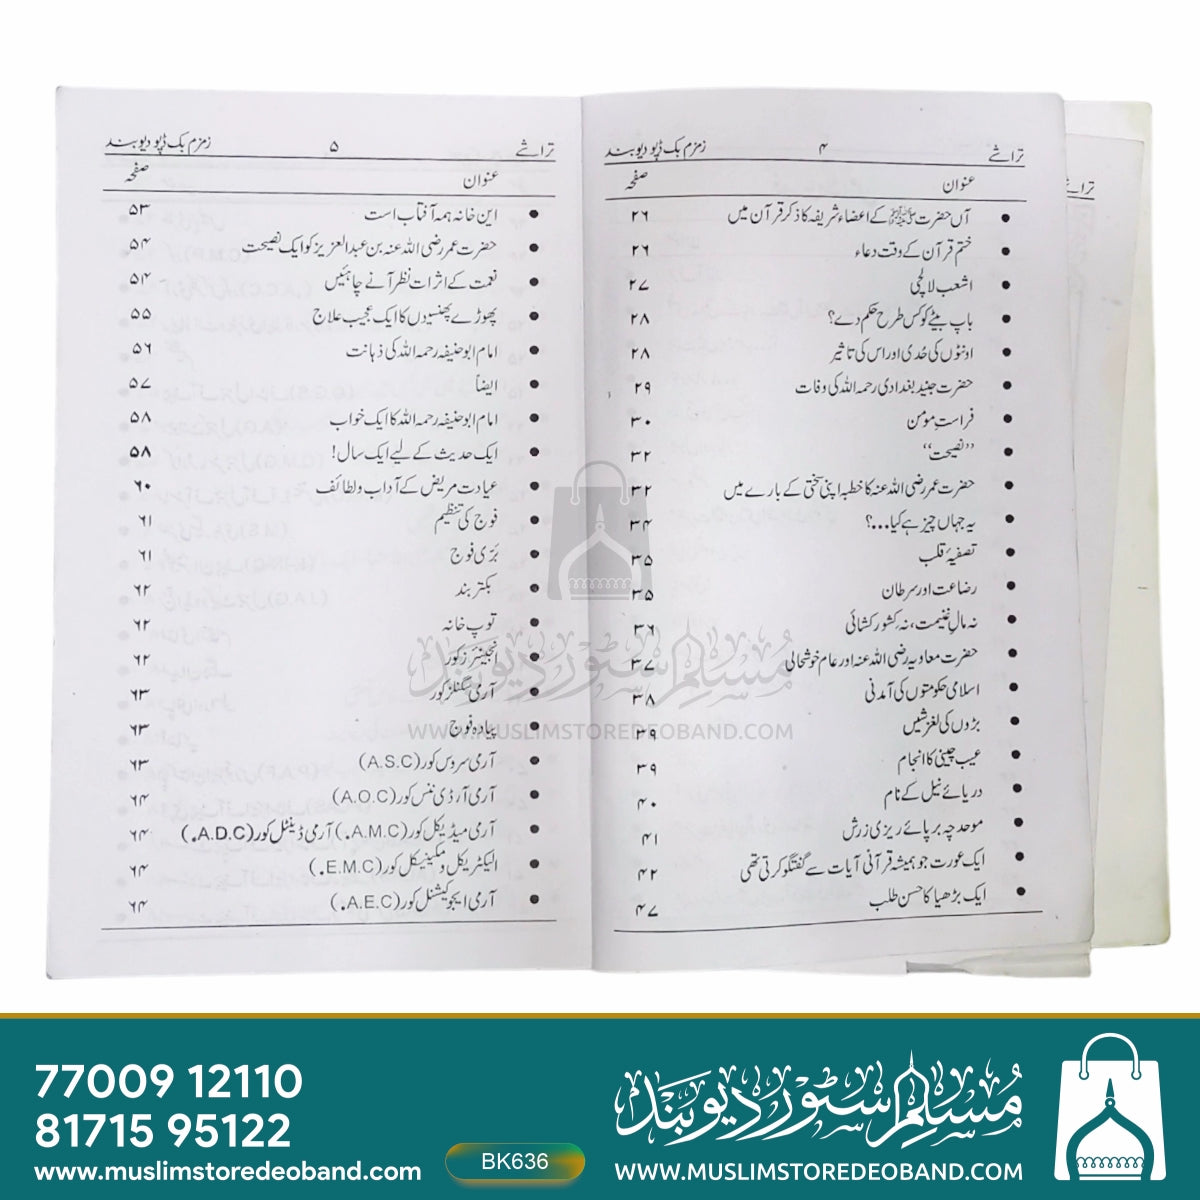 تراشے ۴ زمزم بک ڈپو دیوبند
عنوان صفحہ
• آں حضرت ﷺ کے اعضاء شریفہ کا ذکر قرآن میں ۲۶
• ختم قرآن کے وقت دعاء ۲۶
• اشعب لالچی ۲۷
• باپ بیٹے کو کس طرح حکم دے؟ ۲۸
• اونٹوں کی حُدی اور اس کی تاثیر ۲۸
• حضرت جنید بغدادی رحمہ اللہ کی وفات ۲۹
• فراستِ مومن ۳۰
• ’’نصیحت‘‘ ۳۲
• حضرت عمر رضی اللہ عنہ کا خطبہ اپنی سختی کے بارے میں ۳۲
• یہ جہاں چیز ہے کیا...؟ ۳۴
• تصفیۂ قلب ۳۵
• رضاعت اور سرطان ۳۵
• نہ مالِ غنیمت، نہ کشور کشائی ۳۶
• حضرت معاویہ رضی اللہ عنہ اور عام خوشحالی ۳۷
• اسلامی حکومتوں کی آمدنی ۳۸
• بڑوں کی لغزشیں ۳۹
• عیب چینی کا انجام ۳۹
• دریائے نیل کے نام ۴۰
• موحد چہ بر پائے ریزی زرش ۴۱
• ایک عورت جو ہمیشہ قرآنی آیات سے گفتگو کرتی تھی ۴۲
• ایک بڑھیا کا حسن طلب ۴۷
تراشے ۵ زمزم بک ڈپو دیوبند
عنوان صفحہ
• این خانہ ہمہ آفتاب است ۵۳
• حضرت عمر رضی اللہ عنہ بن عبدالعزیز کو ایک نصیحت ۵۴
• نعمت کے اثرات نظر آنے چاہئیں ۵۴
• پھوڑے پھنسیوں کا ایک عجیب علاج ۵۵
• امام ابوحنیفہ رحمہ اللہ کی ذہانت ۵۶
• ایضاً ۵۷
• امام ابوحنیفہ رحمہ اللہ کا ایک خواب ۵۸
• ایک حدیث کے لیے ایک سال! ۵۸
• عیادت مریض کے آداب و لطائف ۶۰
• فوج کی تنظیم ۶۱
• بَرّی فوج ۶۱
• بکتر بند ۶۲
• توپ خانہ ۶۲
• انجینئرز کور ۶۲
• آرمی سگنلز کور ۶۳
• پیادہ فوج ۶۳
• آرمی سروس کور (A.S.C) ۶۳
• آرمی آرڈی ننس کور (A.O.C) ۶۴
• آرمی میڈیکل کور (A.M.C.) آرمی ڈینٹل کور (A.D.C.) ۶۴
• الیکٹریکل و مکینیکل کور (E.M.C.) ۶۴
• آرمی ایجوکیشنل کور (A.E.C.) ۶۴
تراشے
مسلم سٹور دیوبند
WWW.MUSLIMSTOREDEOBAND.COM
77009 12110
81715 95122
www.muslimstoredeoband.com
BK636
مسلم سٹور دیوبند
WWW.MUSLIMSTOREDEOBAND.COM